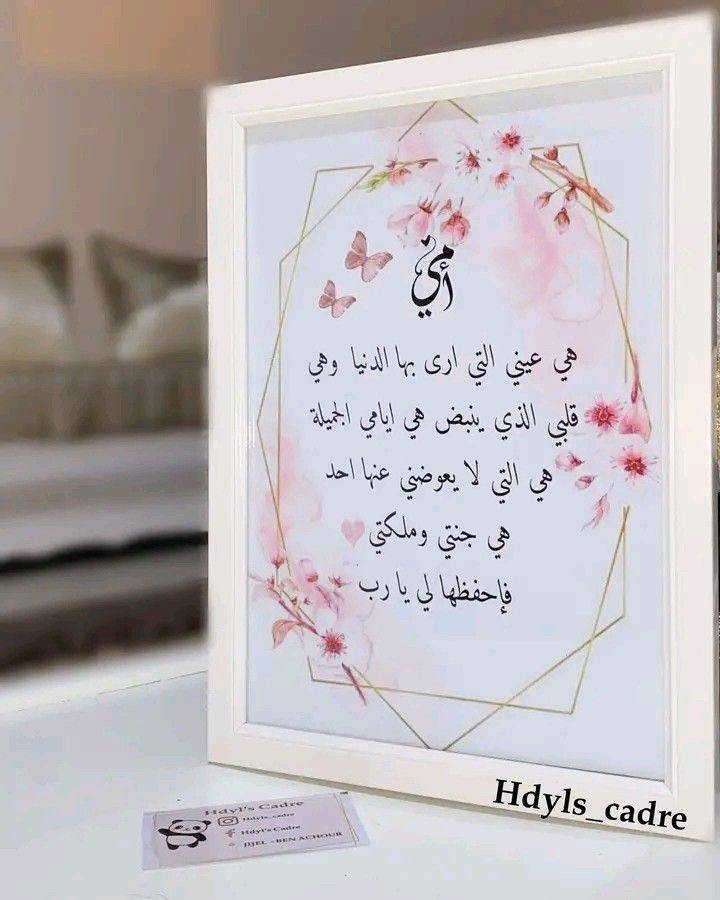 أمي
هي عيني التي ارى بها الدنيا وهي
قلبي الذي ينبض هي ايامي الجميلة
هي التي لا يعوضني عنها احد
هي جنتي وملكتي
فإحفظها لي يا رب
Hdyls_cadre
Hdyl's Cadre
Hdyls_cadre
Hdyl's Cadre
JIJEL - BEN ACHOUR